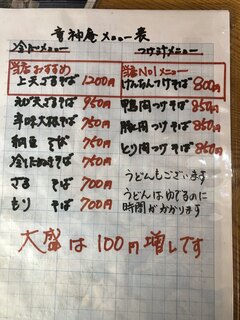 竜神庵メニュー表
冷しメニュー
当店おすすめ
上天ざるそば 1200円
えび天ざるそば 950円
辛味大根そば 950円
納豆 そば 950円
冷したぬきそば 750円
ざる そば 700円
もり そば 700円
つけ汁メニュー
当店No1メニュー
けんちんつけそば 800円
鴨肉つけそば 850円
豚肉つけそば 850円
とり肉つけそば 850円
うどんもございます
うどんはゆでるのに
時間がかかります
大盛は100円増しです